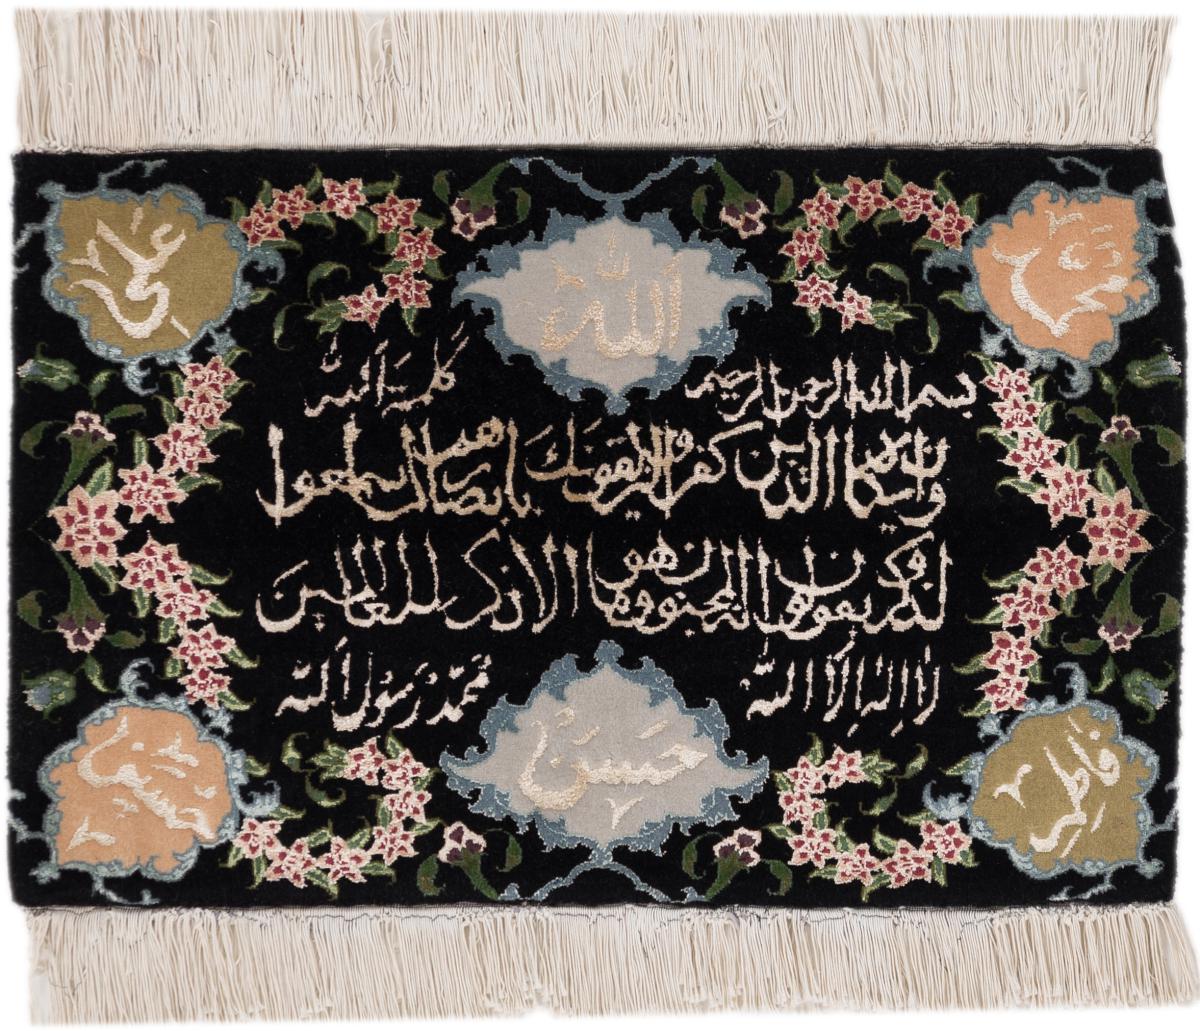 محمد
الله
علی
بسم الله الرحمن الرحیم
کلمة الله
وان یکاد الذین کفروا لیزلقونک بابصارهم لما سمعوا
الذکر ویقولون انه لمجنون وما هو الا ذکر للعالمین
لا اله الا الله
محمد رسول الله
فاطمه
حسن
حسین